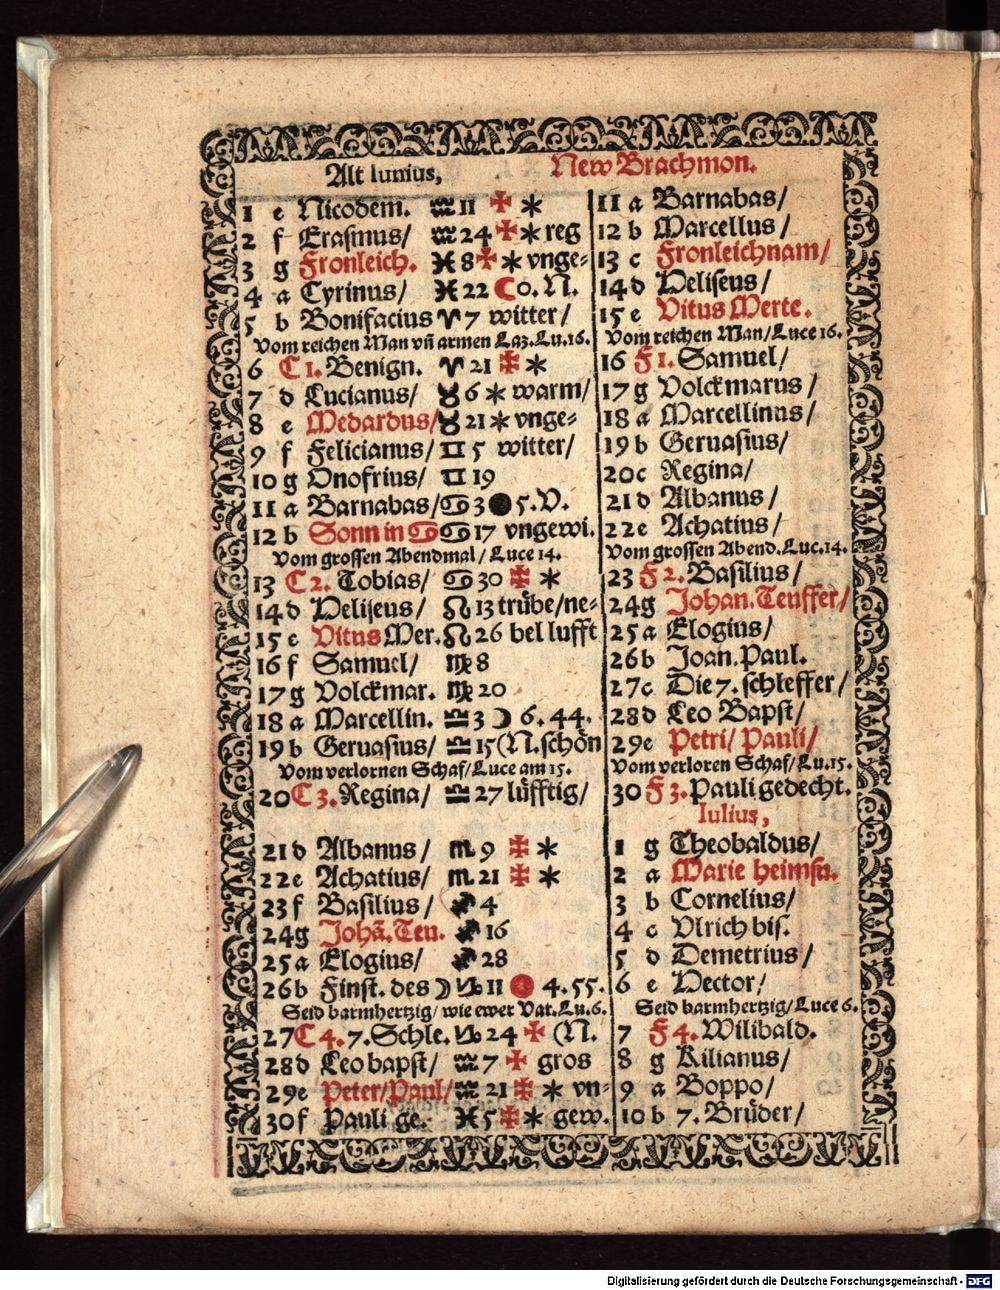 Alt Iunius,
1 e Nicodem. ♒ 11 ✠ *
2 f Erasmus/ ♒ 24 ✠ * reg
3 g Fronleich. ♓ 8 ✠ * vnge=
4 a Cyrinus/ ♓ 22 ☾ 0. N.
5 b Bonifacius ♈ 7 witter/
Vom reichen Man vñ armen Laz. Lu. 16.
6 C 1. Benign. ♈ 21 ✠ *
7 d Lucianus/ ♉ 6 * warm/
8 e Medardus/ ♉ 21 * vnge=
9 f Felicianus/ ♊ 5 witter/
10 g Onofrius/ ♊ 19
11 a Barnabas/ ♋ 3 ● 5. V.
12 b Sonn in ♋ ♋ 17 vngewi.
Vom grossen Abendmal/ Luce 14.
13 C 2. Tobias/ ♋ 30 ✠ *
14 d Veliseus/ ♌ 13 trübe/ ne=
15 e Vitus Mer. ♌ 26 bel lufft
16 f Samuel/ ♍ 8
17 g Volckmar. ♍ 20
18 a Marcellin. ♎ 3 ☽ 6. 44.
19 b Geruasius/ ♎ 15 (N. schön
Vom verlornen Schaf/ Luce am 15.
20 C 3. Regina/ ♎ 27 lüfftig/
21 d Albanus/ ♏ 9 ✠ *
22 e Achatius/ ♏ 21 ✠ *
23 f Basilius/ ♐ 4
24 g Johã. Teu. ♐ 16
25 a Elogius/ ♐ 28
26 b Finst. des ☽ ♑ 11 ● 4. 55.
Seid barmhertzig/ wie ewer Vat. Lu. 6.
27 C 4. 7. Schle. ♑ 24 ✠ (N.
28 d Leo bapst/ ♒ 7 ✠ gros
29 e Peter/ Paul/ ♒ 21 ✠ * vn=
30 f Pauli ge. ♓ 5 ✠ * gew.
New Brachmon.
11 a Barnabas/
12 b Marcellus/
13 c Fronleichnam/
14 d Veliseus/
15 e Vitus Merte.
Vom reichen Man/ Luce 16.
16 F 1. Samuel/
17 g Volckmarus/
18 a Marcellinus/
19 b Geruasius/
20 c Regina/
21 d Albanus/
22 e Achatius/
Vom grossen Abend. Luc. 14.
23 F 2. Basilius/
24 g Johan. Teuffer/
25 a Elogius/
26 b Joan. Paul.
27 c Die 7. schleffer/
28 d Leo Bapst/
29 e Petri/ Pauli/
Vom verloren Schaf/ Lu. 15.
30 F 3. Pauli gedecht.
Iulius,
1 g Theobaldus/
2 a Marie heimsu.
3 b Cornelius/
4 c Vlrich bis.
5 d Demetrius/
6 e Vector/
Seid barmhertzig/ Luce 6.
7 F 4. Wilibald.
8 g Kilianus/
9 a Boppo/
10 b 7. Brüder/
Digitalisierung gefördert durch die Deutsche Forschungsgemeinschaft - DFG